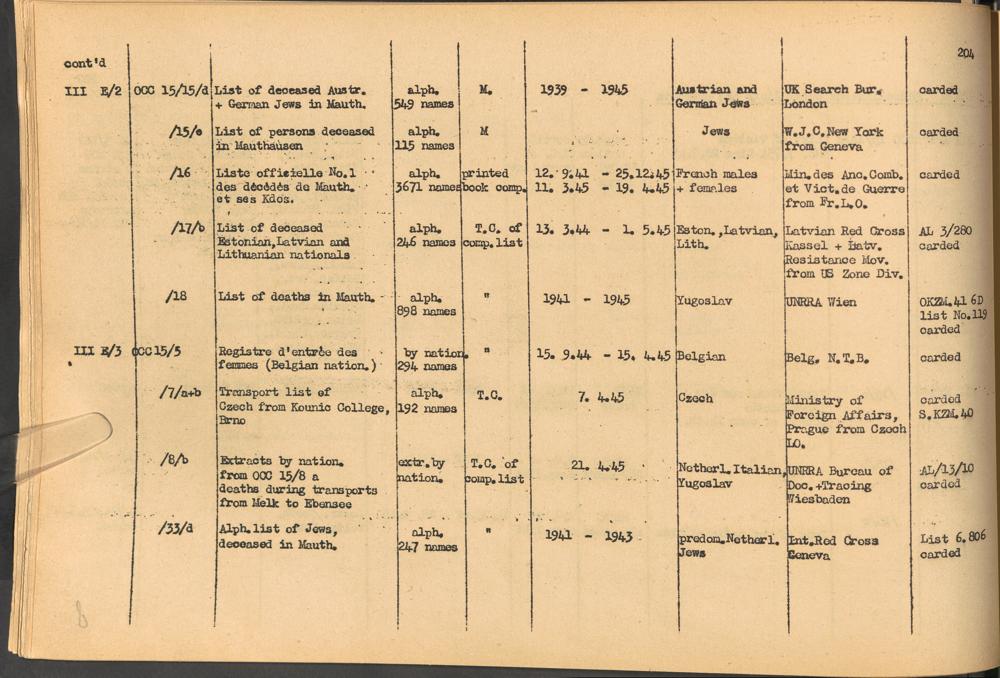 204
cont'd
III E/2 OCC 15/15/d List of deceased Austr. alph. M. 1939 - 1945 Austrian and UK Search Bur. carded
+ German Jews in Mauth. 549 names German Jews London
/15/e List of persons deceased alph. M Jews W.J.C. New York carded
in Mauthausen 115 names from Geneva
/16 Liste officielle No.1 alph. printed 12. 9.41 - 25.12.45 French males Min. des Anc. Comb. carded
des décédés de Mauth. 3671 names book comp. 11. 3.45 - 19. 4.45 + females et Vict. de Guerre
et ses Kdos. from Fr.L.O.
/17/b List of deceased alph. T.C. of 13. 3.44 - 1. 5.45 Eston., Latvian, Latvian Red Cross AL 3/280
Estonian, Latvian and 246 names comp. list Lith. Kassel + Latv. carded
Lithuanian nationals Resistance Mov.
from US Zone Div.
/18 List of deaths in Mauth. alph. " 1941 - 1945 Yugoslav UNRRA Wien OKZM. 41 6D
898 names list No.119
carded
III E/3 OCC 15/5 Registre d'entrée des by nation. " 15. 9.44 - 15. 4.45 Belgian Belg. N.T.B. carded
femmes (Belgian nation.) 294 names
/7/a+b Transport list of alph. T.C. 7. 4.45 Czech Ministry of carded
Czech from Kounic College, 192 names Foreign Affairs, S.KZM. 40
Brno Prague from Czech
LO.
/8/b Extracts by nation. extr. by T.C. of 21. 4.45 Netherl. Italian, UNRRA Bureau of AL/13/10
from OCC 15/8 a nation. comp. list Yugoslav Doc. +Tracing carded
deaths during transports Wiesbaden
from Melk to Ebensee
/33/d Alph. list of Jews, alph. " 1941 - 1943 predom. Netherl. Int. Red Cross List 6.806
deceased in Mauth. 247 names Jews Geneva carded
8